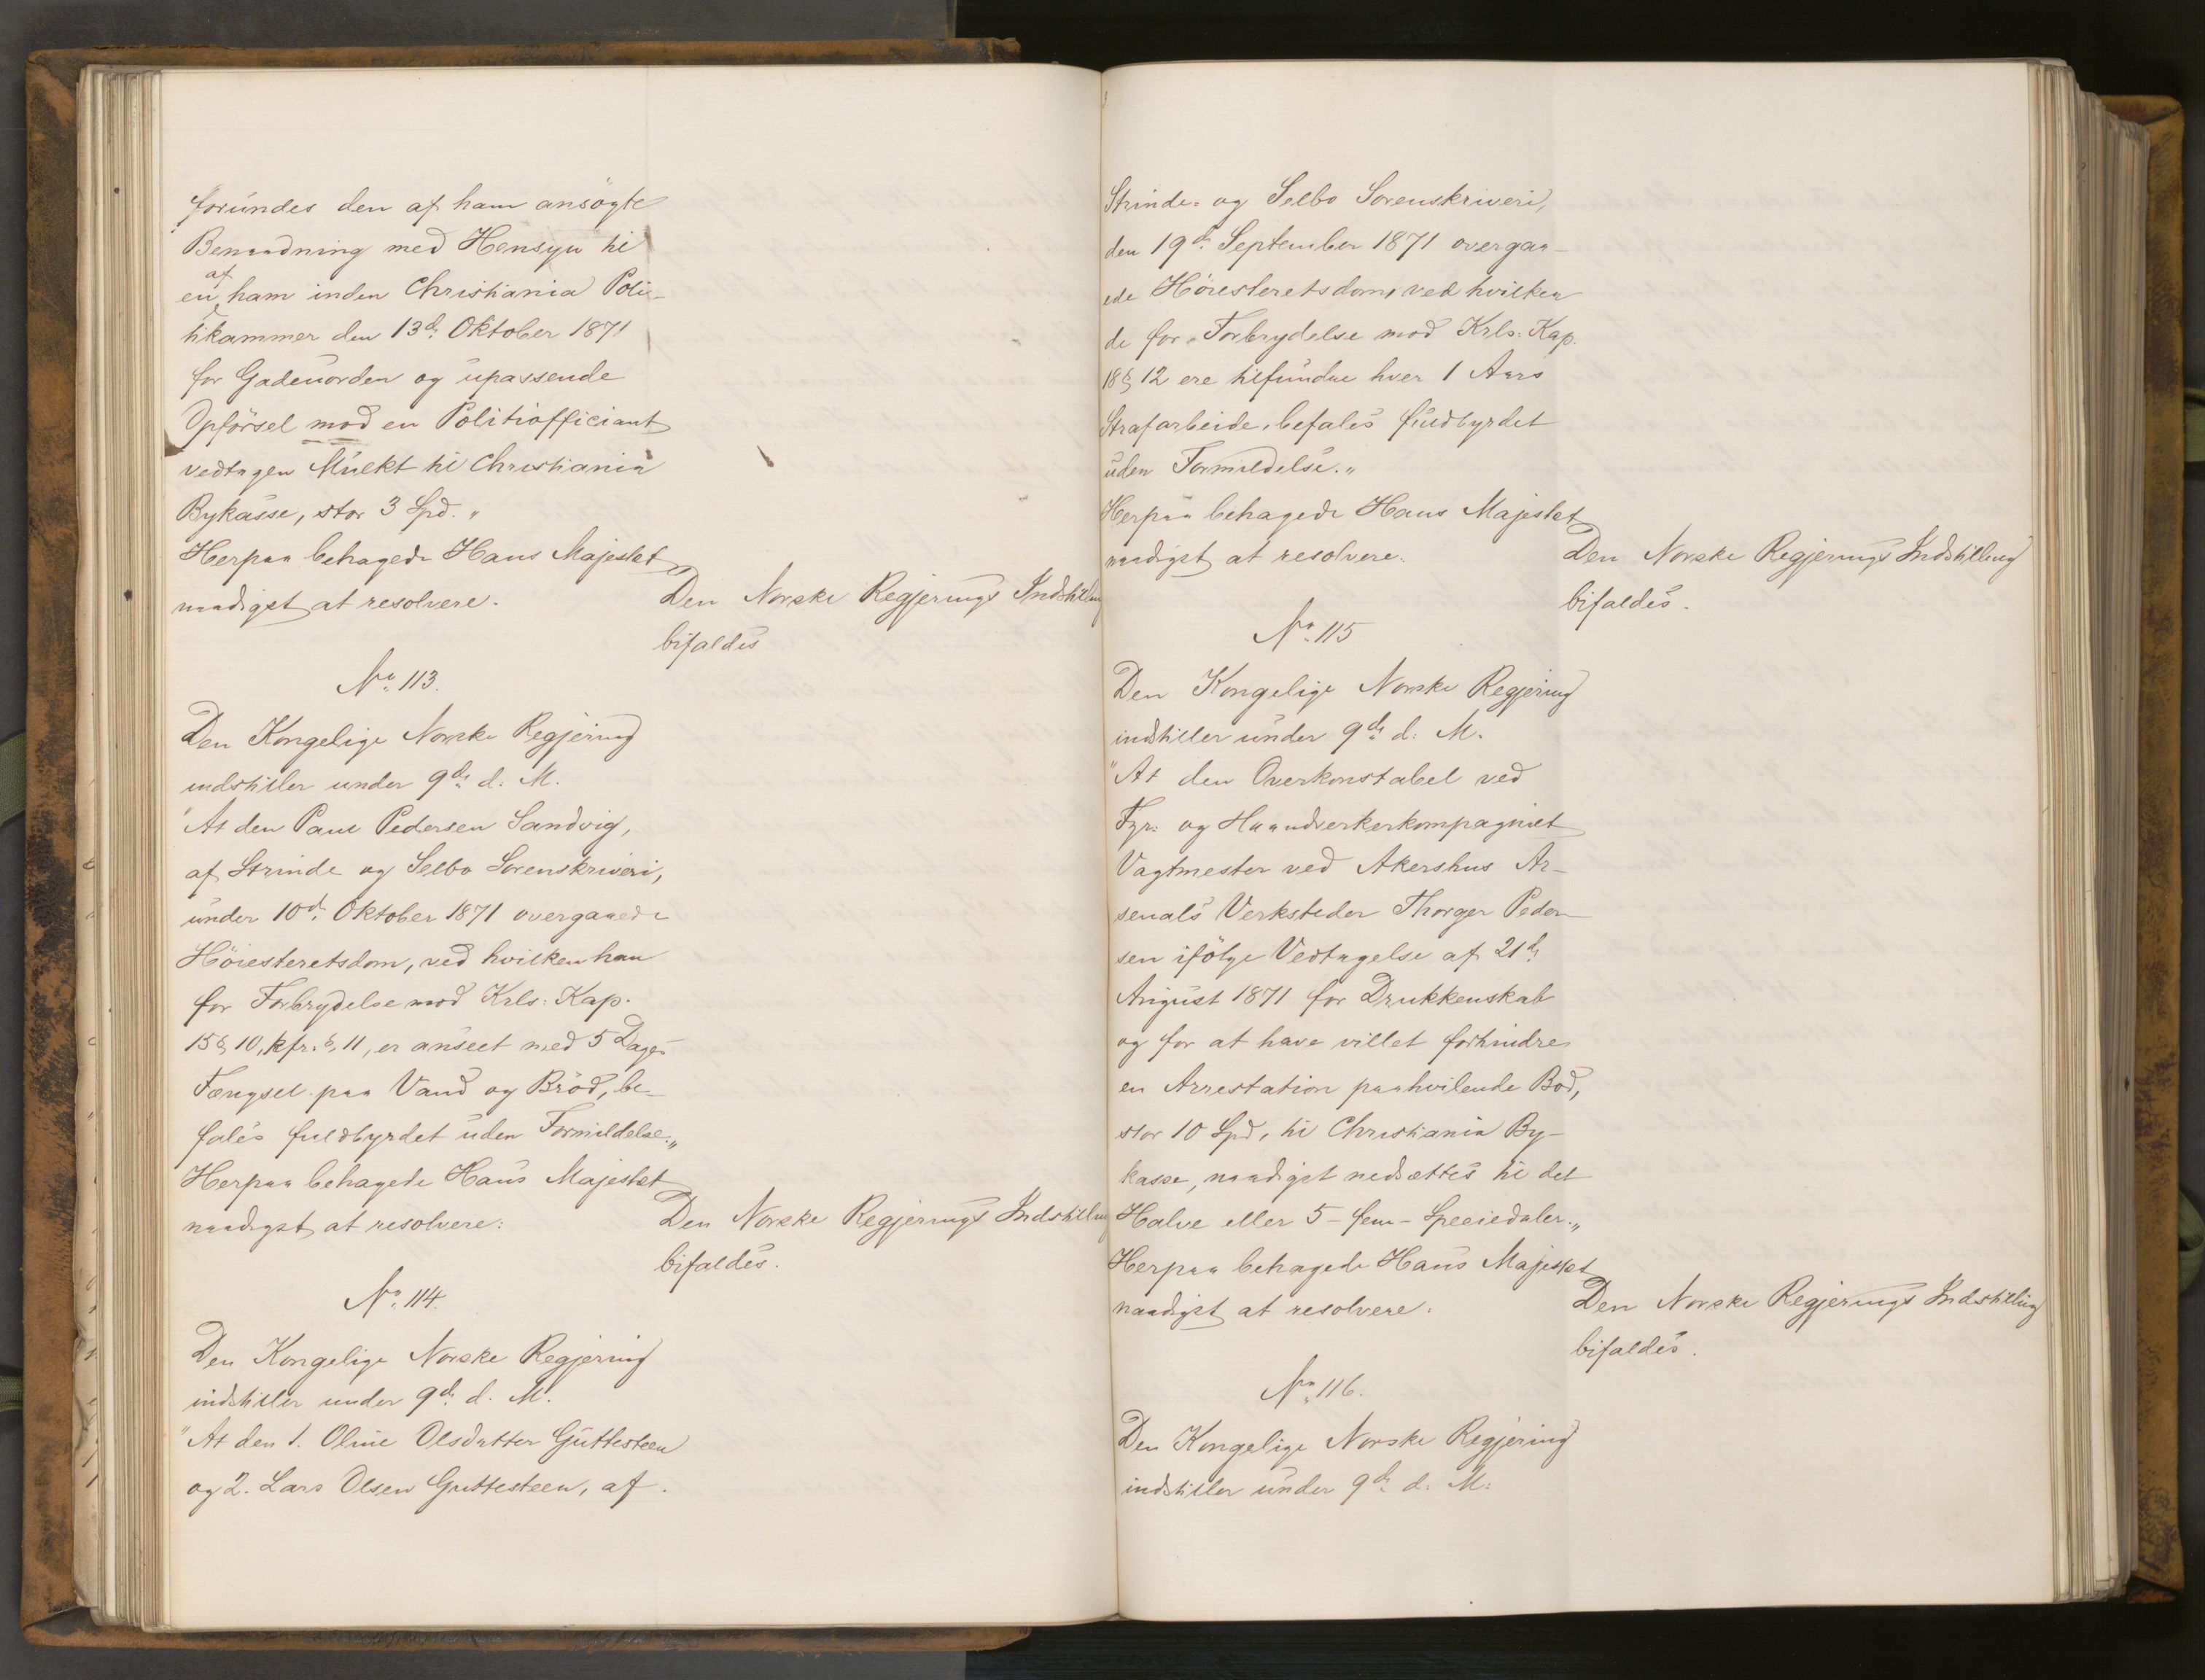 forundes den af ham ansögte
Benaadning med Hensyn til
en af ham inden Christiania Poli-
tikammer den 13de Oktober 1871
for Gadeuorden og upassende
Opförsel mod en Politiofficiant
vedtagen Mulkt til Christiania
Bykasse, stor 3 Spd."
Herpaa behagede Hans Majestæt
naadigst at resolvere.
Den Norske Regjerings Indstilling
bifaldes
No. 113.
Den Kongelige Norske Regjering
indstiller under 9de d. M.
"At den Paul Pedersen Sandvig,
af Strinde og Selbo Sorenskriveri,
under 10de Oktober 1871 overgaaede
Höiesteretsdom, ved hvilken han
for Forbrydelse mod Krls. Kap.
15 § 10, kfr. § 11, er anseet med 5 Dages
Fængsel paa Vand og Bröd, be-
fales fuldbyrdet uden Formildelse."
Herpaa behagede Hans Majestæt
naadigst at resolvere:
Den Norske Regjerings Indstilling
bifaldes.
No. 114.
Den Kongelige Norske Regjering
indstiller under 9de d. M.
"At den 1. Oline Olsdatter Guttesteen
og 2. Lars Olsen Guttesteen, af
Strinde- og Selbo Sorenskriveri,
den 19de September 1871 overgaa-
ede Höiesteretsdom, ved hvilken
de for Forbrydelse mod Krls. Kap.
18 § 12 ere tilfundne hver 1 Aars
Strafarbeide, befales fuldbyrdet
uden Formildelse."
Herpaa behagede Hans Majestæt
naadigst at resolvere.
Den Norske Regjerings Indstilling
bifaldes.
No. 115
Den Kongelige Norske Regjering
indstiller under 9de d. M.
"At den Overkonstabel ved
Fyr- og Haandverkerkompagniet
Vagtmester ved Akershus Ar-
senals Verksteder Thorger Peder-
sen ifölge Vedtagelse af 21de
August 1871 for Drukkenskab
og for at have villet forhindre
en Arrestation paahvilende Bod,
stor 10 Spd, til Christiania By-
kasse, naadigst nedsættes til det
Halve eller 5 - fem - Speciedaler."
Herpaa behagede Hans Majestæt
naadigst at resolvere:
Den Norske Regjerings Indstilling
bifaldes.
No. 116.
Den Kongelige Norske Regjering
indstiller under 9de d. M.